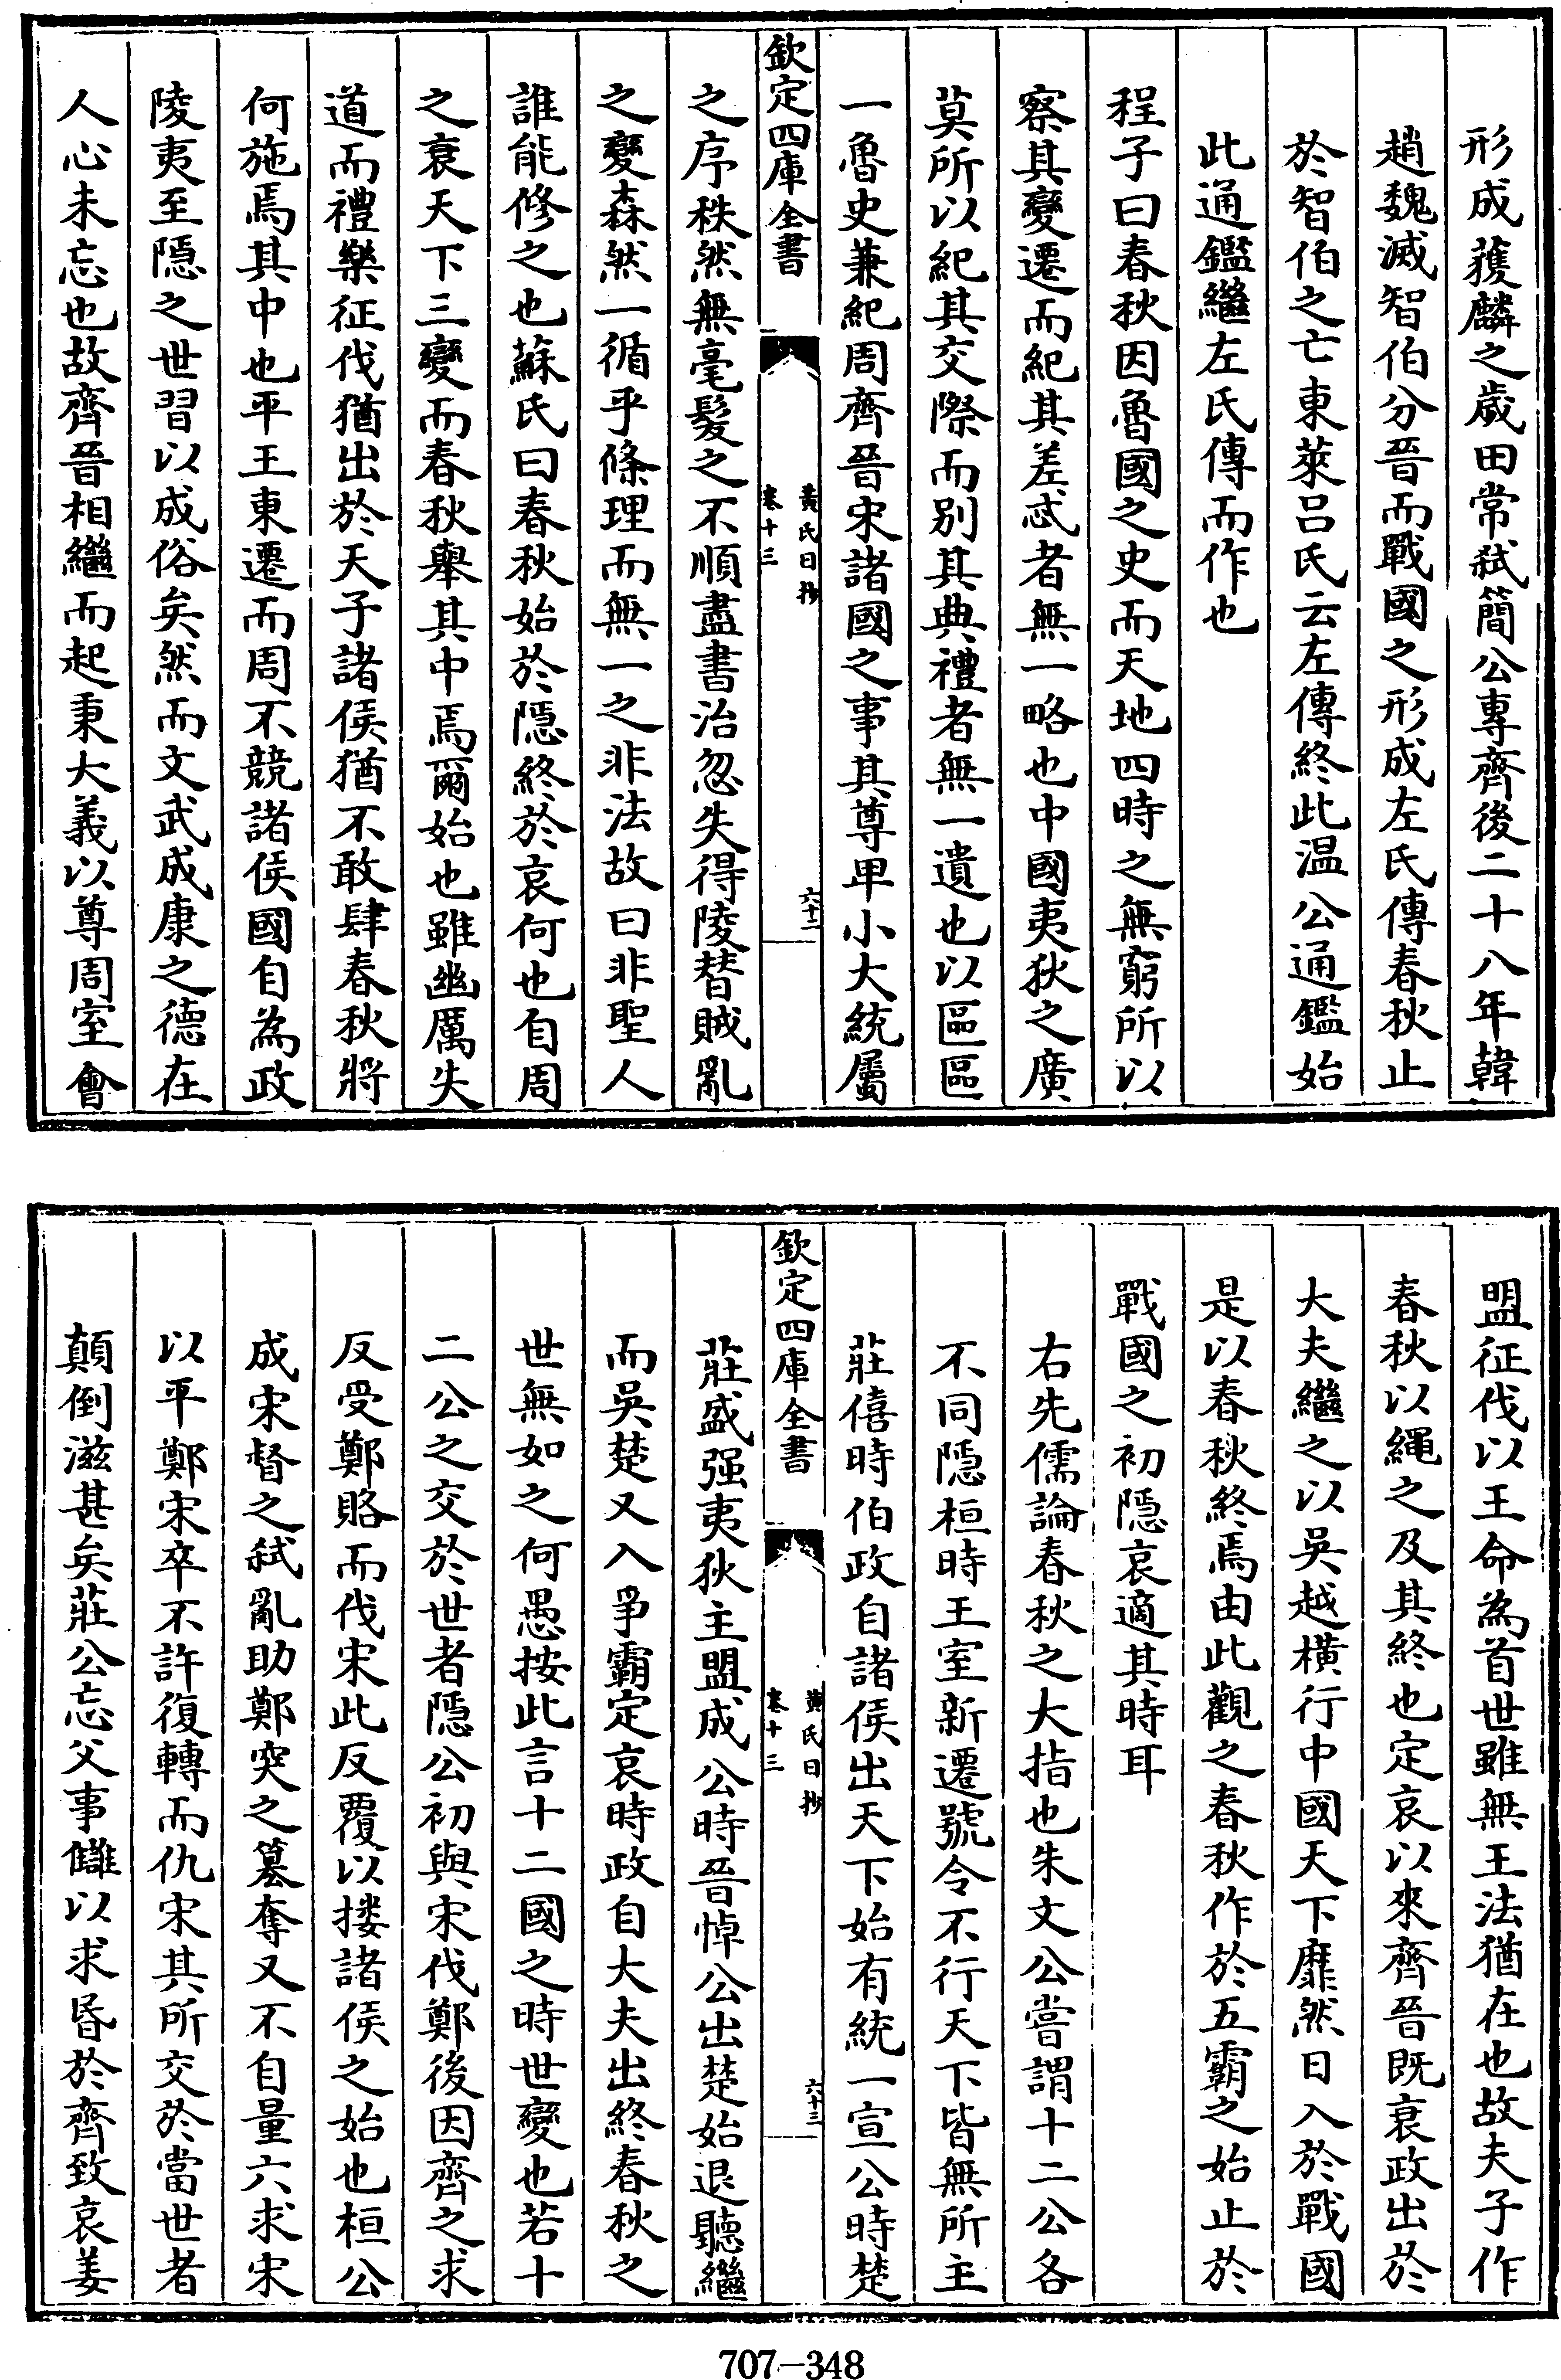 形成獲麟之歲田常弑簡公專齊後二十八年韓
趙魏滅智伯分晉而戰國之形成左氏傳春秋止
於智伯之亡東萊呂氏云左傳終此温公通鑑始
此通鑑繼左氏傳而作也
程子曰春秋因魯國之史而天地四時之無窮所以
察其變遷而紀其差忒者無一略也中國夷狄之廣
莫所以紀其交際而别其典禮者無一遺也以區區
一魯史兼紀周齊晉宋諸國之事其尊卑小大統屬
欽定四庫全書
黃氏日抄
卷十三
六十二
之序秩然無毫髮之不順盡書治忽失得陵替賊亂
之變森然一循乎條理而無一之非法故曰非聖人
誰能修之也蘇氏曰春秋始於隱終於哀何也自周
之衰天下三變而春秋舉其中焉爾始也雖幽厲失
道而禮樂征伐猶出於天子諸侯猶不敢肆春秋將
何施焉其中也平王東遷而周不競諸侯國自為政
陵夷至隱之世習以成俗矣然而文武成康之德在
人心未忘也故齊晉相繼而起秉大義以尊周室會
盟征伐以王命為首世雖無王法猶在也故夫子作
春秋以繩之及其終也定哀以來齊晉既衰政出於
大夫繼之以吳越横行中國天下靡然日入於戰國
是以春秋終焉由此觀之春秋作於五霸之始止於
戰國之初隱哀適其時耳
右先儒論春秋之大指也朱文公嘗謂十二公各
不同隱桓時王室新遷號令不行天下皆無所主
莊僖時伯政自諸侯出天下始有統一宣公時楚
欽定四庫全書
黃氏日抄
卷十三
六十三
莊盛强夷狄主盟成公時晉悼公出楚始退聽繼
而吳楚又入爭霸定哀時政自大夫出終春秋之
世無如之何愚按此言十二國之時世變也若十
二公之交於世者隱公初與宋伐鄭後因齊之求
反受鄭賂而伐宋此反覆以摟諸侯之始也桓公
成宋督之弑亂助鄭突之簒奪又不自量六求宋
以平鄭宋卒不許復轉而仇宋其所交於當世者
顛倒滋甚矣莊公忘父事讎以求昏於齊致哀姜
707-348